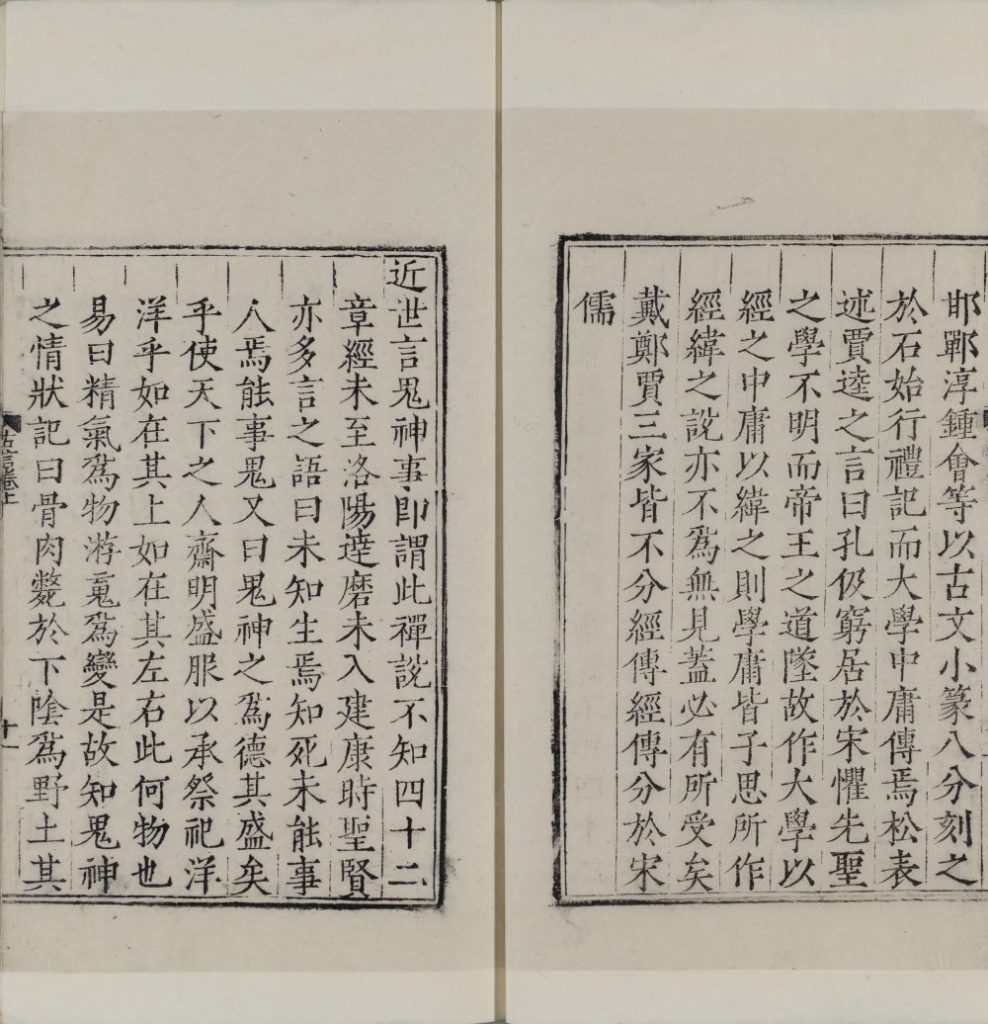 邯鄲淳鍾會等以古文小篆八分刻之
於石始行禮記而大學中庸傳焉松表
述賈逵之言曰孔伋窮居於宋懼先聖
之學不明而帝王之道墜故作大學以
經之中庸以緯之則學庸皆子思所作
經緯之說亦不爲無見蓋必有所受矣
戴鄭賈三家皆不分經傳經傳分於宋
儒
近世言鬼神事即謂此禪說不知四十二
章經未至洛陽達磨未入建康時聖賢
亦多言之語曰未知生焉知死未能事
人焉能事鬼又曰鬼神之爲德其盛矣
乎使天下之人齋明盛服以承祭祀洋
洋乎如在其上如在其左右此何物也
易曰精氣爲物游䰟爲變是故知鬼神
之情狀記曰骨肉斃於下陰爲野土其
卷上
十一